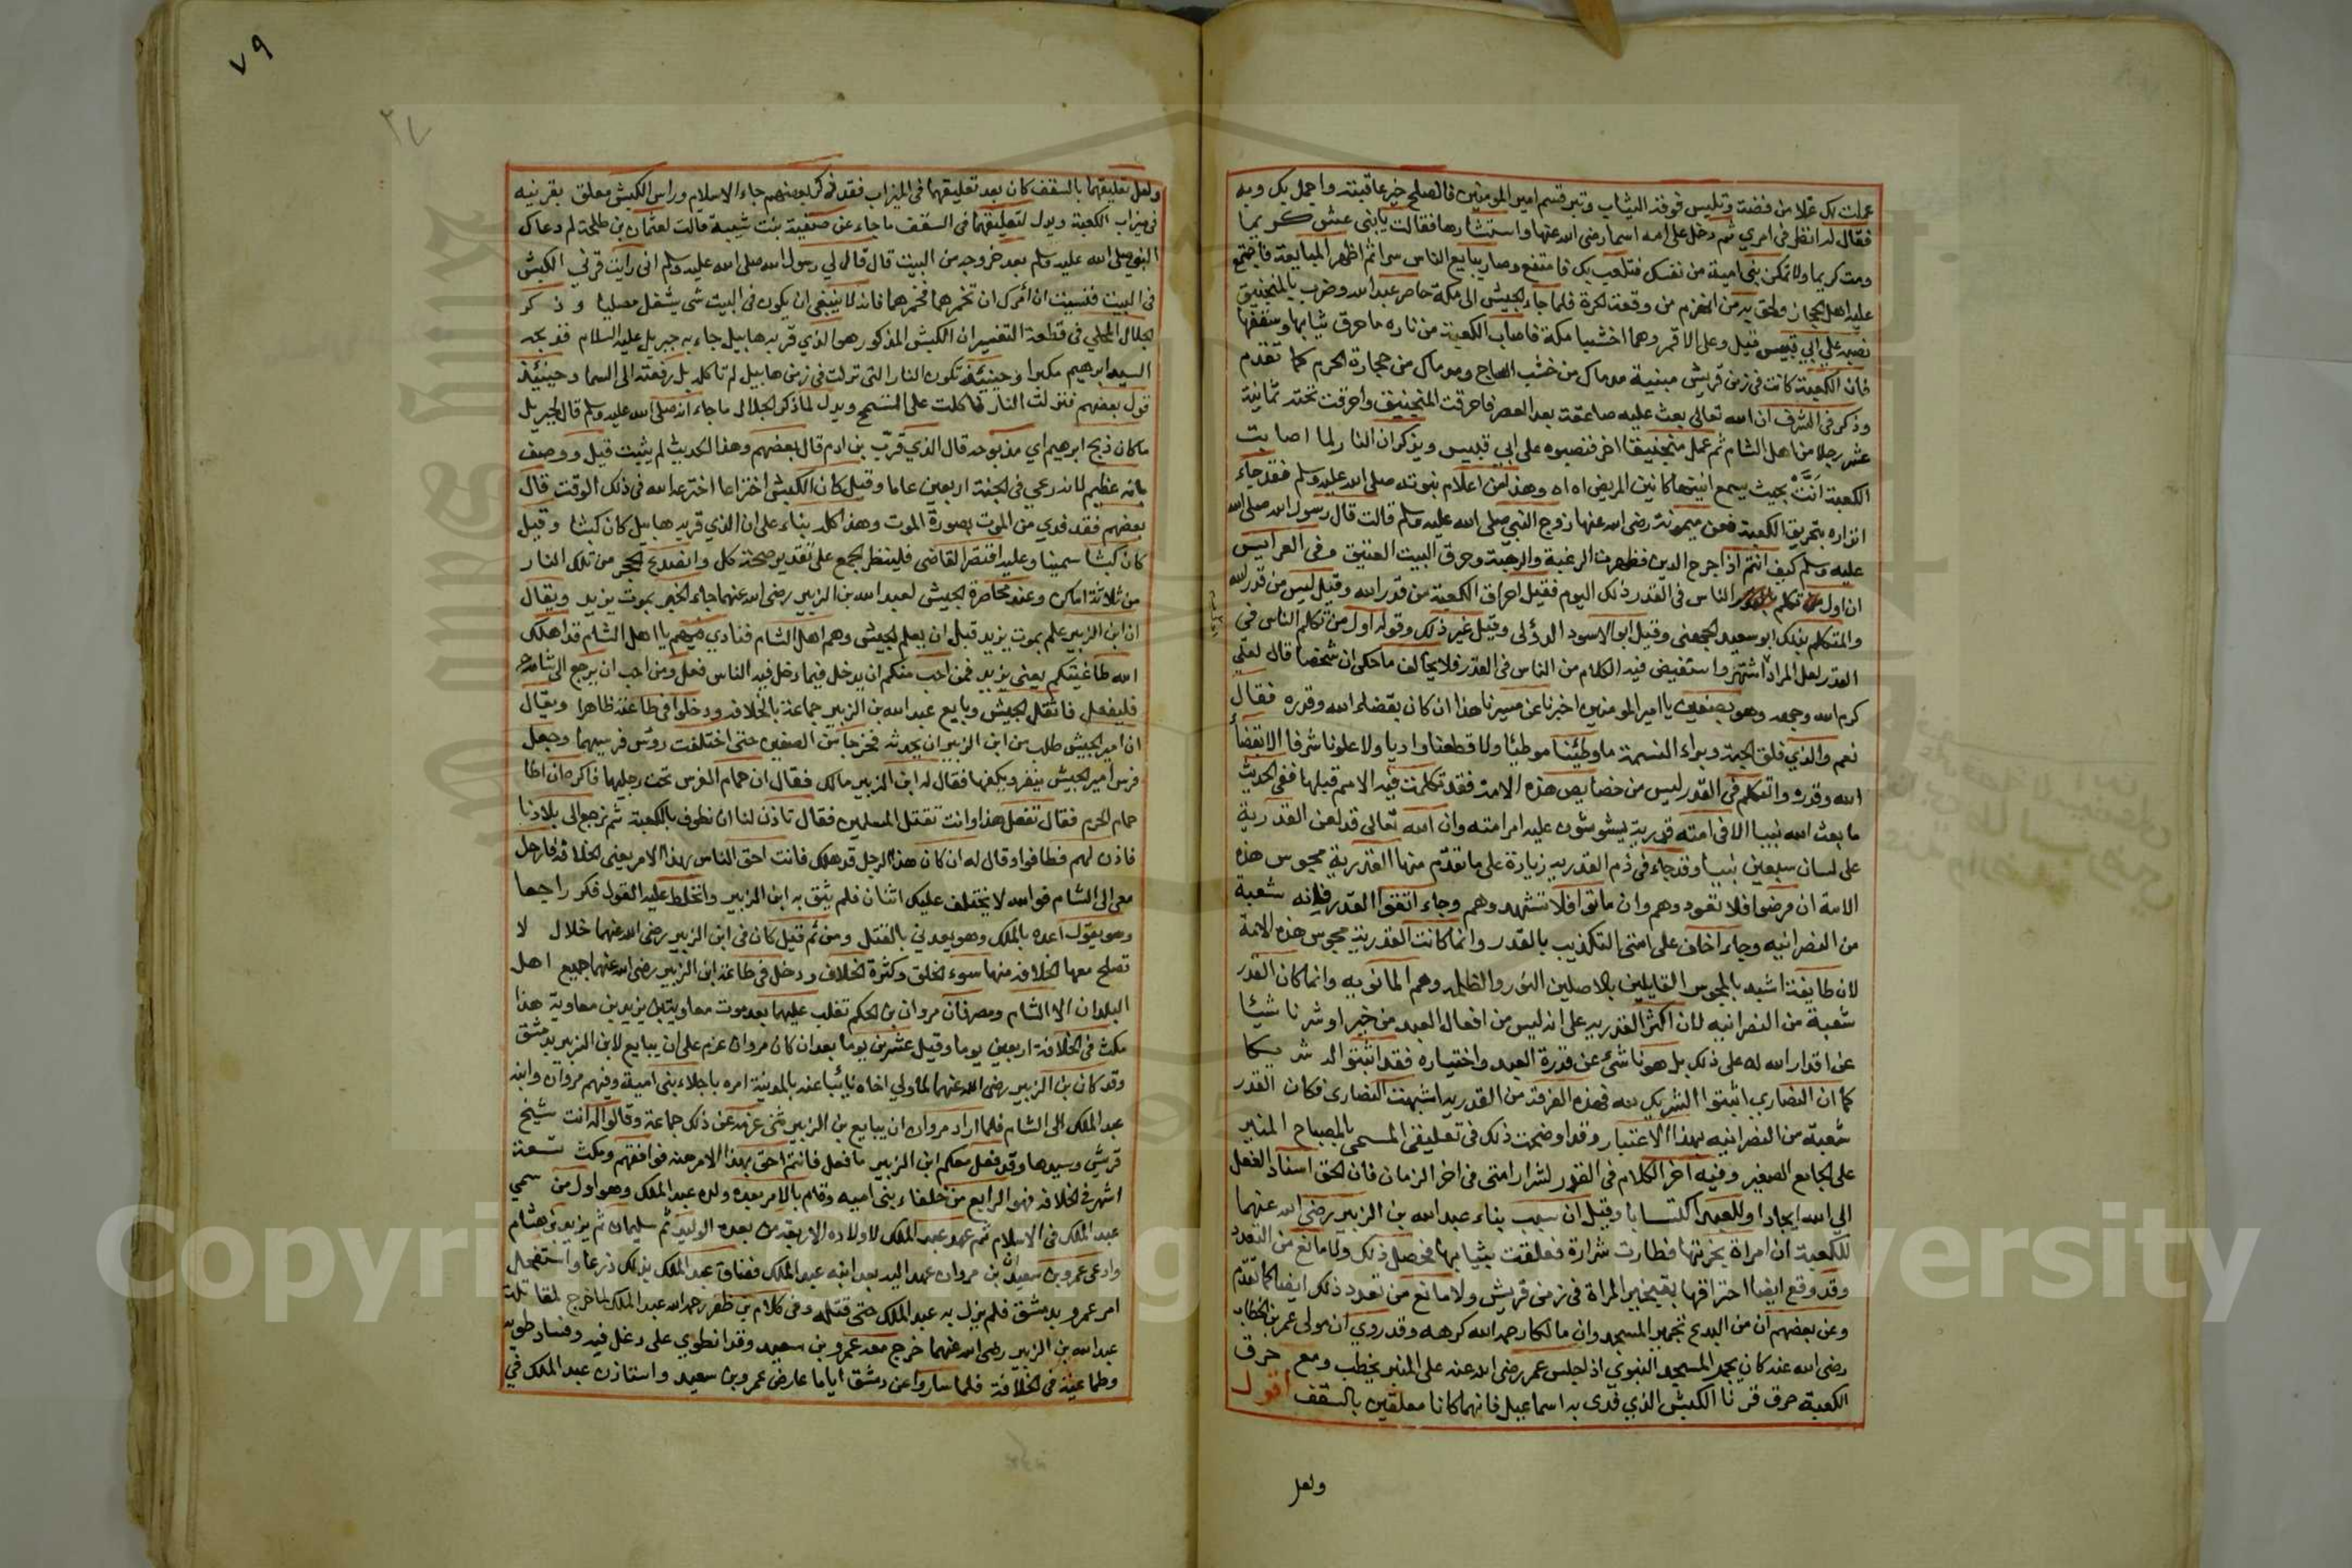 عملت لك غلا من فضة وتلبس فوقه الثياب وتبر قسم امير المومنين فالصلح خير عاقبة واجمل بك وبه
فقال له انظر في امري ثم دخل على امه اسما رضى الله عنها واستشارها فقالت يا بنى عش كريما
ومت كريما ولا تمكن بنى امية من نفسك فتلعب بك فامتنع وصار يبايع الناس سرا ثم اظهر المبايعة فاجتمع
عليه اهل الحجاز ولحق به من انهزم من وقعة الحرة فلما جاء الجيش الى مكة حاصر عبد الله وضرب بالمنجنيق
نصبه على ابي قبيس قيل وعلى الاقمر وهما اخشبا مكة فاصاب الكعبة من ناره ما حرق ثيابها وسقفها
فان الكعبة كانت في زمن قريش مبنية مدماك من خشب الساج ومدماك من حجارة الحرم كما تقدم
وذكر في الشرف ان الله تعالى بعث عليه صاعقة بعد العصر فاحرقت المنجنيق واحرقت تحته ثمانية
عشر رجلا من اهل الشام ثم عمل منجنيقا اخر فنصبوه على ابي قبيس ويذكر ان النار لما اصابت
الكعبة انَّتْ بحيث يسمع انينها كانين المريض اه اه وهذا من اعلام نبوته صلى الله عليه وسلم فقد جاء
انذاره بتحريق الكعبة فعن ميمونة رضى الله عنها زوج النبي صلى الله عليه وسلم قالت قال رسول الله صلى الله
عليه وسلم كيف انتم اذا مرج الدين فظهرت الرغبة والرهبة وحرق البيت العتيق وفى العرايس
ان اول من تكلم الناس في القدر ذلك اليوم فقيل احراق الكعبة من قدر الله وقيل ليس من قدر الله
والمتكلم بذلك ابو سعيد الجهني وقيل ابو الاسود الدؤلى وقيل غير ذلك وقوله اول من تكلم الناس في
القدر لعل المراد اشتهر واستفيض فيه الكلام من الناس في القدر فلا يخالف ما حكى ان شخصا قال لعلي
كرم الله وجهه وهو بصفين يا امير المومنين اخبرنا عن مسيرنا هذا ان كان بقضاء الله وقدره فقال
نعم والذي فلق الحبة وبراء النسمة ما وطئنا موطئا ولا قطعنا واديا ولا علونا شرفا الا بقضاء
الله وقدره والتكلم في القدر ليس من خصايص هذه الامة فقد تكلمت فيه الامم قبلها ففي الحديث
ما بعث الله نبيا الا في امته قدرية يشوشون عليه امر امته وان الله تعالى قد لعن القدرية
على لسان سبعين نبيا وقد جاء في ذم القدريه زيادة على ما تقدم منها القدرية مجوس هذه
الامة ان مرضوا فلا تعودوهم وان ماتوا فلا تشهدوهم وجاء اتقوا القدر فانه شعبة
من النصرانيه وجاء اخاف على امتى التكذيب بالقدر وانما كانت القدرية مجوس هذه الامة
لان طايفة اشبه بالمجوس القايلين بالاصلين النور والظلمه وهم المانويه وانما كان القدر
شعبة من النصرانيه لان اكثر القدريه على انه ليس من افعال العبد من خير او شر ناشيئا
عن اقدار الله له على ذلك بل هو ناشئ عن قدرة العبد واختياره فقد اثبتوا له شريكا
كما ان النصارى اثبتوا الشريك لله فهذه الفرقة من القدريه اشبهت النصارى فكان القدر
شعبة من النصرانيه بهذا الاعتبار وقد اوضحت ذلك في تعليقى المسمى بالمصباح المنير
على الجامع الصغير وفيه اخر الكلام في القدر لشرار امتى في اخر الزمان فان الحق اسناد الفعل
الي الله ايجادا وللعبد اكتسابا وقيل ان سبب بناء عبد الله بن الزبير رضى الله عنهما
للكعبة ان امراة بخرتها فطارت شرارة فعلقت بثيابها فحصل ذلك ولا مانع من التعدد
وقد وقع ايضا احتراقها بتبخير المراة في زمن قريش ولا مانع من تعدد ذلك ايضا كما تقدم
وعن بعضهم ان من البدع تجمير المسجد وان مالكا رحمه الله كرهه وقد روي ان مولى عمر بن الخطاب
رضى الله عنه كان يجمر المسجد النبوي اذا جلس عمر رضى الله عنه على المنبر يخطب ومع حرق
الكعبة حرق قرنا الكبش الذي فدى به اسماعيل فانهما كانا معلقين بالسقف اقول
ولعل
٧٩
٢٧
ولعل تعليقهما بالسقف كان بعد تعليقهما في الميزاب فقد ذكر بعضهم جاء الاسلام وراس الكبش معلق بقرنيه
في ميزاب الكعبة ويدل لتعليقهما في السقف ما جاء عن صفية بنت شيبة قالت لعثمان بن طلحة لم دعاك
النبي صلى الله عليه وسلم بعد خروجه من البيت قال قال لي رسول الله صلى الله عليه وسلم انى رايت قرني الكبش
في البيت فنسيت ان امرك ان تخمرهما فخمرهما فانه لا ينبغى ان يكون في البيت شى يشغل مصليا وذكر
الجلال المحلي في قطعة التفسير ان الكبش المذكور هو الذي قربه هابيل جاء به جبريل عليه السلام فذبحه
السيد ابرهيم مكبرا وحينئذ تكون النار التى نزلت في زمن هابيل لم تاكله بل رفعته الى السما وحينئذ
قول بعضهم فنزلت النار فاكلت على التسمح ويدل لما ذكر الجلال ما جاء انه صلى الله عليه وسلم قال لجبريل
ما كان ذبح ابرهيم اي مذبوحه قال الذي قرب بن ادم قال بعضهم وهذا الحديث لم يثبت قيل ووصف
بانه عظيم لانه رعى في الجنة اربعين عاما وقيل كان الكبش اختراعا اخترعه الله في ذلك الوقت قال
بعضهم فقد فدي من الموت بصورة الموت وهذا كله بناء على ان الذي قربه هابيل كان كبشا وقيل
كان كبشا سمينا وعليه اقتصر القاضى فلينظر الجمع على تقدير صحة كل وانصدع الحجر من تلك النار
من ثلاثة اماكن وعند محاصرة الجيش لعبد الله بن الزبير رضى الله عنهما جاء الخبر بموت يزيد ويقال
ان ابن الزبير علم بموت يزيد قبل ان يعلم الجيش وهم اهل الشام فنادي فيهم يا اهل الشام قد اهلك
الله طاغيتكم يعني يزيد فمن احب منكم ان يدخل فيما دخل فيه الناس فعل ومن احب ان يرجع الى شامه
فليفعل فانثقل الجيش وبايع عبد الله بن الزبير جماعة بالخلافه ودخلوا في طاعته ظاهرا ويقال
ان امير الجيش طلب من ابن الزبير ان يحدثه فخرجا من الصفين حتى اختلفت روس فرسيهما وجعل
فرس امير الجيش ينفر ويكفها فقال له ابن الزبير مالك فقال ان حمام الفرس تحت رجليها فاكره ان اطا
حمام الحرم فقال تفعل هذا وانت تقتل المسلمين فقال تاذن لنا ان نطوف بالكعبة ثم نرجع الى بلادنا
فاذن لهم فطافوا وقال له ان كان هذا الرجل قد هلك فانت احق الناس بهذا الامر يعني الخلافة فارحل
معى الى الشام فوالله لا يختلف عليك اثنان فلم يثق به ابن الزبير واغلظ عليه القول فكر راجعا
وهو يقول اعده بالملك وهو يعدني بالقتل ومن ثم قيل كان في ابن الزبير رضى الله عنهما خلال لا
تصلح معها الخلافة منها سوء الخلق وكثرة الخلاف ودخل في طاعة ابن الزبير رضى الله عنهما جميع اهل
البلدان الا الشام ومصر فان مروان بن الحكم تغلب عليهما بعد موت معاوية بن يزيد بن معاوية هذا
مكث في الخلافة اربعين يوما وقيل عشرين يوما بعد ان كان مروان عزم على ان يبايع لابن الزبير بدمشق
وقد كان بن الزبير رضى الله عنهما لما ولي اخاه نايبا عنه بالمدينة امره باجلاء بنى امية وفيهم مروان وابنه
عبد الملك الى الشام فلما اراد مروان ان يبايع بن الزبير ثنى عزمه عن ذلك جماعة وقالوا له انت شيخ
قريش وسيدها وقد فعل معكم ابن الزبير ما فعل فانتم احق بهذا الامر منه فوافقهم ومكث تسعة
اشهر في الخلافه فهو الرابع من خلفاء بنى اميه وقام بالامر بعده ولده عبد الملك وهو اول من سمي
عبد الملك في الاسلام ثم عهد عبد الملك لاولاده الاربعة من بعده الوليد ثم سليمان ثم يزيد ثم هشام
وادعى عمرو بن سعيد ان مروان عهد اليه بعد ابنه عبد الملك فضاق عبد الملك بذلك ذرعا واستفحل
امر عمرو بدمشق فلم يزل به عبد الملك حتى قتله وفي كلام بن ظفر رحمه الله عبد الملك لما خرج لمقاتلة
عبد الله بن الزبير رضى الله عنهما خرج معه عمرو بن سعيد وقد انطوي على دغل فيه وفساد طويه
وطماعية في الخلافة فلما ساروا عن دمشق اياما عارض عمرو بن سعيد واستاذن عبد الملك في
Copyright © King Saud University